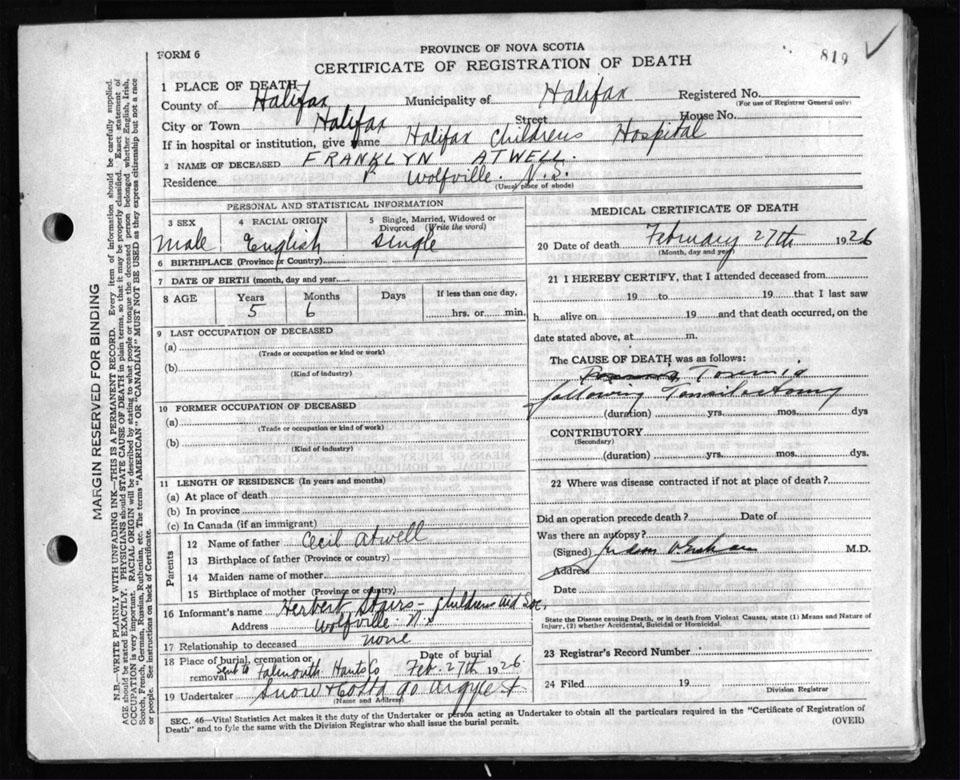 FORM 6
PROVINCE OF NOVA SCOTIA
CERTIFICATE OF REGISTRATION OF DEATH
819
1 PLACE OF DEATH
County of Halifax Municipality of Halifax Registered No.
(For use of Registrar General only)
City or Town Halifax Street House No.
If in hospital or institution, give name Halifax Childrens Hospital
2 NAME OF DECEASED FRANKLYN ATWELL.
Residence Wolfville. N.S.
(Usual place of abode)
PERSONAL AND STATISTICAL INFORMATION
3 SEX 4 RACIAL ORIGIN 5 Single, Married, Widowed or Divorced (Write the word)
male English Single
6 BIRTHPLACE (Province or Country)
7 DATE OF BIRTH (month, day and year)
8 AGE Years Months Days If less than one day,
5 6 hrs. or min.
9 LAST OCCUPATION OF DECEASED
(a)
(Trade or occupation or kind or work)
(b)
(Kind of industry)
10 FORMER OCCUPATION OF DECEASED
(a)
(Trade or occupation or kind of work)
(b)
(Kind of industry)
11 LENGTH OF RESIDENCE (In years and months)
(a) At place of death
(b) In province
(c) In Canada (if an immigrant)
Parents
12 Name of father Cecil Atwell
13 Birthplace of father (Province or country)
14 Maiden name of mother
15 Birthplace of mother (Province or country)
16 Informant's name Herbert Stairs - Childrens Aid Soc.
Address Wolfville N.S
17 Relationship to deceased none
18 Place of burial, cremation or removal Sent to Falmouth Hants Co Date of burial Feb. 27th 1926
19 Undertaker Snow & Co Ltd 90 Argyle St
(Name and Address)
MEDICAL CERTIFICATE OF DEATH
20 Date of death February 27th 1926
(Month, day and year)
21 I HEREBY CERTIFY, that I attended deceased from
19 to 19 that I last saw
h alive on 19 and that death occurred, on the
date stated above, at m.
The CAUSE OF DEATH was as follows:
following
(duration) yrs. mos. dys
CONTRIBUTORY
(Secondary)
(duration) yrs. mos. dys.
22 Where was disease contracted if not at place of death?
Did an operation precede death? Date of
Was there an autopsy?
(Signed) M.D.
Address
Date
State the Disease causing Death, or in death from Violent Causes, state (1) Means and Nature of Injury, (2) whether Accidental, Suicidal or Homicidal.
23 Registrar's Record Number
24 Filed 19
Division Registrar
SEC. 46—Vital Statistics Act makes it the duty of the Undertaker or person acting as Undertaker to obtain all the particulars required in the "Certificate of Registration of
Death" and to fyle the same with the Division Registrar who shall issue the burial permit.
(OVER)
MARGIN RESERVED FOR BINDING
N.B.—WRITE PLAINLY WITH UNFADING INK—THIS IS A PERMANENT RECORD. Every item of information should be carefully supplied.
AGE should be stated EXACTLY. PHYSICIANS should STATE CAUSE OF DEATH in plain terms, so that it may be properly classified. Exact statement of
OCCUPATION is very important. RACIAL ORIGIN will be described by stating to what people or tongue the deceased person belonged whether English, Irish,
Scotch, French, German, Russian, Ruthenian, etc. The terms "AMERICAN" or "CANADIAN" MUST NOT BE USED as they express citizenship but not a race
or people. See instructions on back of Certificate.